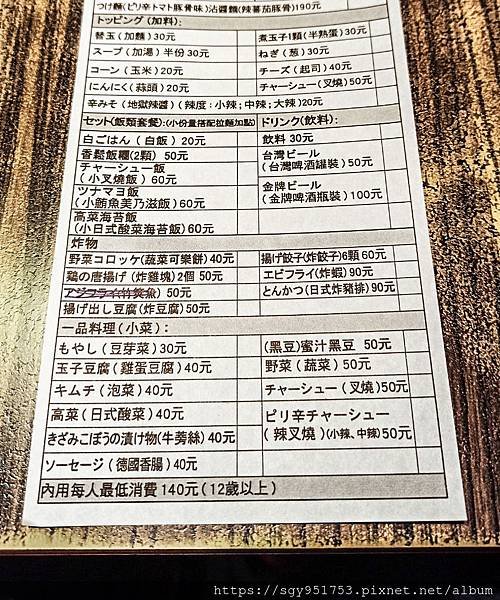 つけ麵(ピリ辛トマト豚骨味)沾醬麵(辣蕃茄豚骨)190元
トッピング(加料):
替玉(加麵)30元 煮玉子1顆(半熟蛋)30元
スープ(加湯)半份30元 ねぎ(葱)30元
コーン(玉米)20元 チーズ(起司)40元
にんにく(蒜頭)20元 チャーシュー(叉燒)50元
辛みそ(地獄辣醬)(辣度:小辣;中辣;大辣20元
セット(飯類套餐):(小份量搭配拉麵加點) ドリンク(飲料):
白ごはん(白飯)20元 飲料30元
香鬆飯糰(2顆) 50元 台灣ビール
(台灣啤酒罐裝)50元
チャーシュー飯
(小叉燒飯)60元
ツナマヨ飯 金牌ビール
(小鮪魚美乃滋飯)60元 (金牌啤酒瓶裝)100元
高菜海苔飯
(小日式酸菜海苔飯)60元
炸物
野菜コロッケ(蔬菜可樂餅)40元 揚げ餃子(炸餃子)6顆60元
鶏の唐揚げ(炸雞塊)2個50元 エビフライ(炸蝦)90元
アジフライ(竹莢魚)50元 とんかつ(日式炸豬排)90元
揚げ出し豆腐(炸豆腐)50元
一品料理(小菜):
もやし(豆芽菜)30元 (黒豆)蜜汁黑豆 50元
玉子豆腐(雞蛋豆腐)40元 野菜(蔬菜)50元
キムチ(泡菜)40元 チャーシュー(叉燒)50元
高菜(日式酸菜)40元 ピリ辛チャーシュー
(辣叉燒)(小辣、中辣)50元
きざみごぼうの漬け物(牛蒡絲)40元
ソーセージ(德國香腸)40元
內用每人最低消費140元(12歲以上)
https://sgy951753.pixnet.net/album